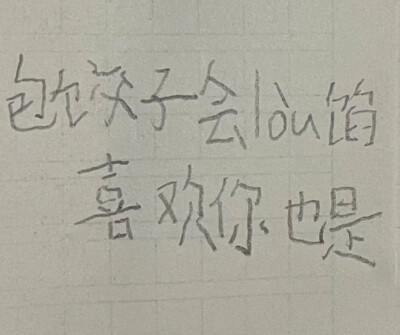 包饺子会lòu馅
喜欢你也是